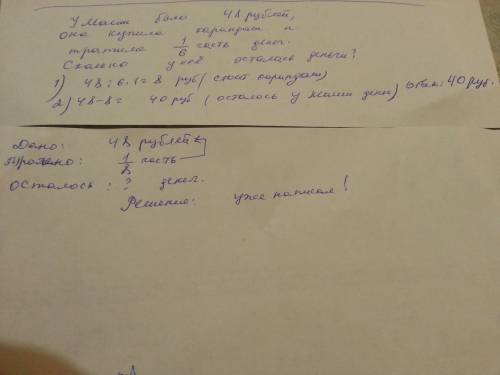 У Маши было 48 рублей,
Она купила карандаш и
тратила 1/6 часть денег.
Сколько у неё осталась деньги?
1) 48 : 6 · 1 = 8 руб (стоит карандаш)
2) 48-8= 40 руб (осталось у Маши) Ответ: 40 руб.
Дано: 48 рублей
: 1/8 часть
Осталось : ? денег.
Решение: уже написал!